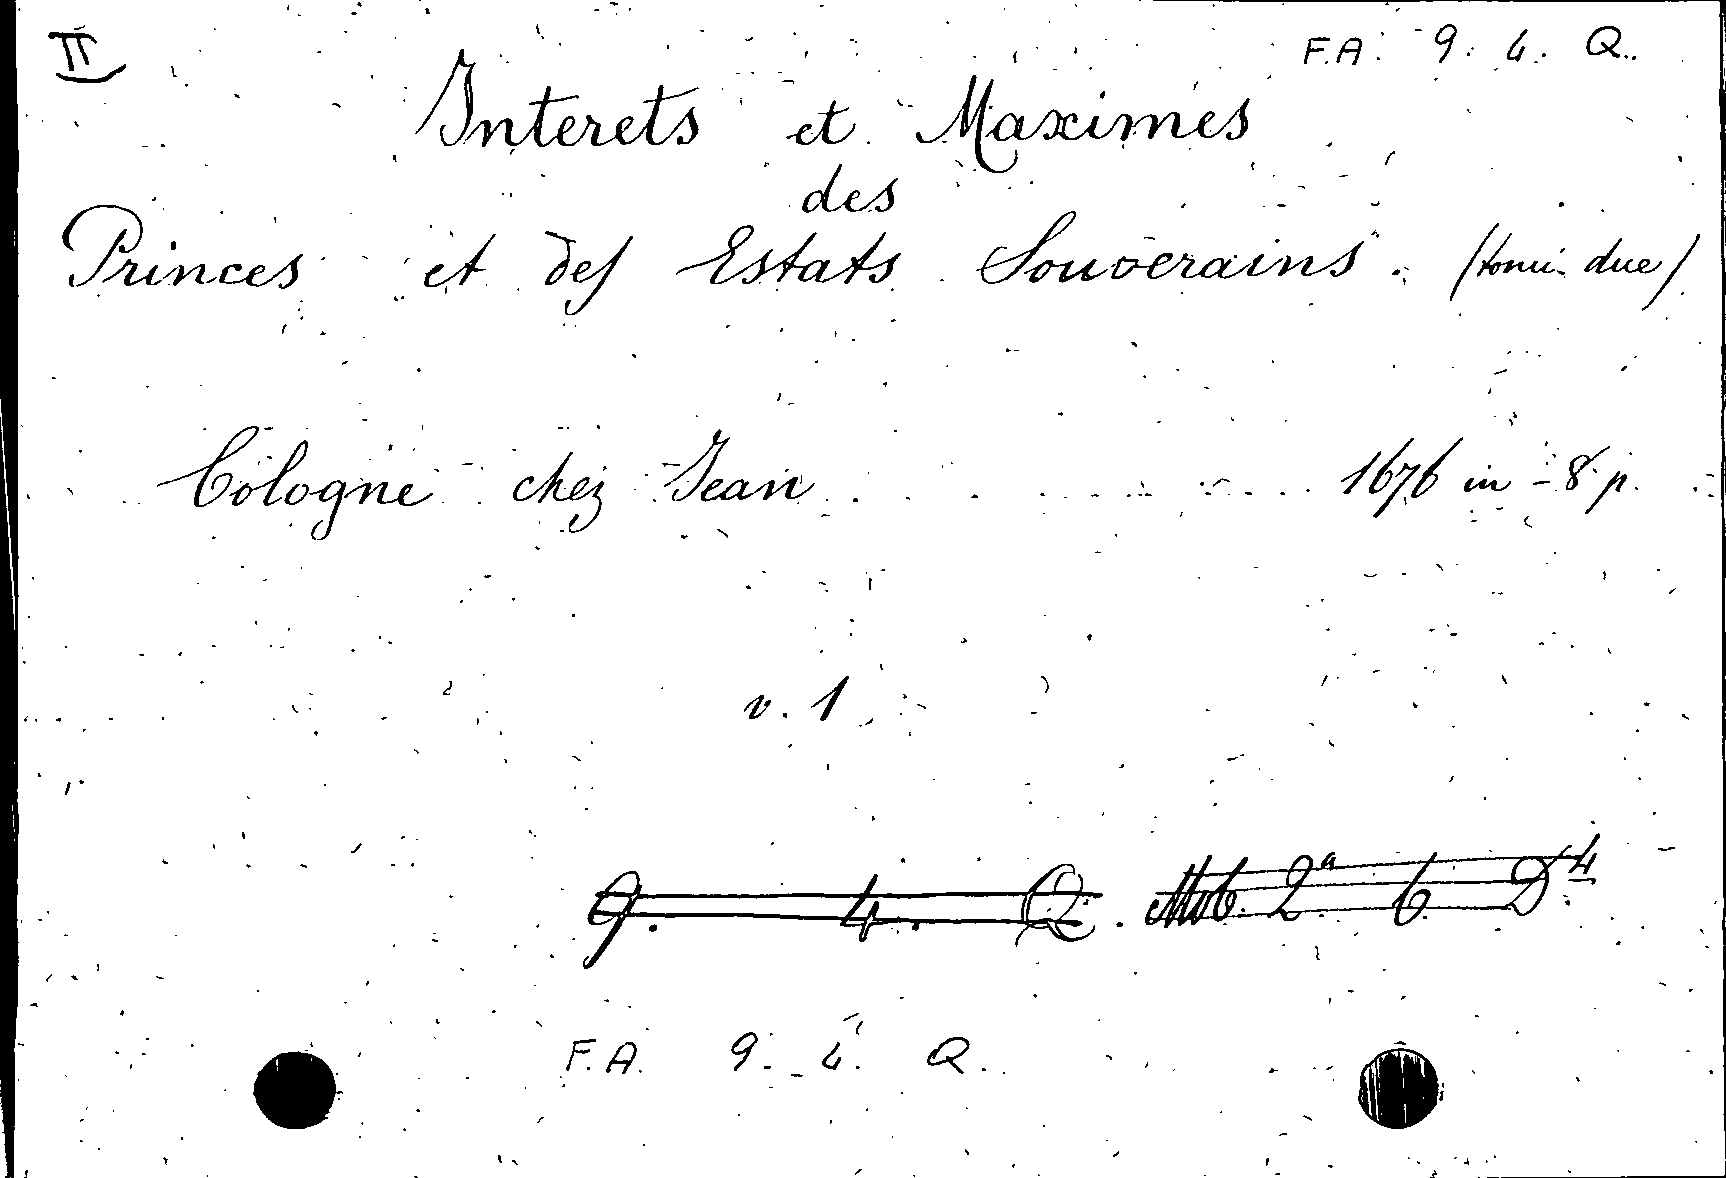 II F.A. 9. 4. Q.
Interets et Maximes
des
Princes et des Estats Souverains. (tomi due)
Cologne chez Jean . . . . . . . . . . 1676 in - 8 p.
v. 1
9. 4. Q. Mob. 2a 6 D4
F.A. 9. 4. Q.